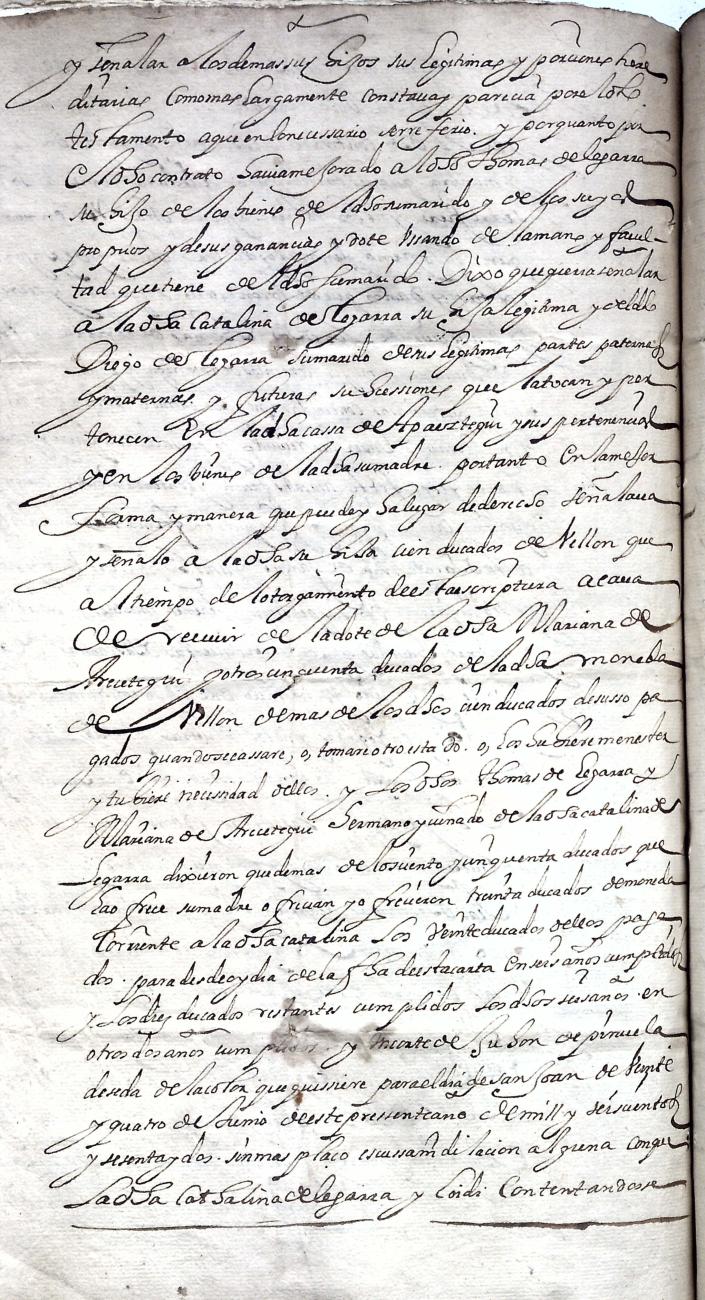 y señalar a los demas sus hijos sus legitimas y porciones here
ditarias como mas largamente constava y parecia por el dho
testamento a que en lo necessario se rreferio. y por quanto por
el dho contrato havia mejorado a el dho Thomas de legarra
su hijo de los bienes de el dho su marido y de los suyos
propios y de sus ganancias y dote Usando de la mano y facul-
tad que tiene de el dho su marido. Dixo que queria señalar
a la dha Catalina de legarra su hija legitima y del dho
Diego de legarra su marido de sus legitimas partes paternas
y maternas y futuras subcessiones que la tocan y per
tenecen En la dha cassa de Apaeztegui y sus pertenencias
y en los vienes de la dha su madre. por tanto En la mejor
forma y manera que puede y ha lugar de derecho señalava
y señalo a la dha su hija cien ducados de Vellon que
al tiempo de lotorgamiento de esta escriptura acava
de recivir de la dote de la dha Mariana de
Arcutegui y otros cinquenta ducados de la dha moneda
de Vellon demas de los dhos cien ducados desusso pa
gados quando se cassare, o, tomare otro estado. o, los hubiere menester
y tubiere necessidad dellos. y Los dhos Thomas de legarra y
Mariana de Arcutegui hermano y cuñado de la dha catalina de
legarra dixieron que demas de los ciento y cinquenta ducados que
la ofrece su madre ofrecian y ofrecieron treinta ducados de moneda
corriente a la dha catalina Los Veinte ducados dellos paga
dos. para desde oy dia de la fha de esta carta En seis años cumplidos
y Los diez ducados restantes cumplidos Los dhos seis años. en
otros dos años cumplidos. y Un corte de Jubon de primuela
de seda de la color que quissiere para el dia de San Joan de Veynte
y quatro de Junio de este pressente año de mill y seiscientos
y sesenta y dos. sin mas plaço escussa ni dilacion alguna conque
La dha Cathalina de legarra y Loidi Contentandosse